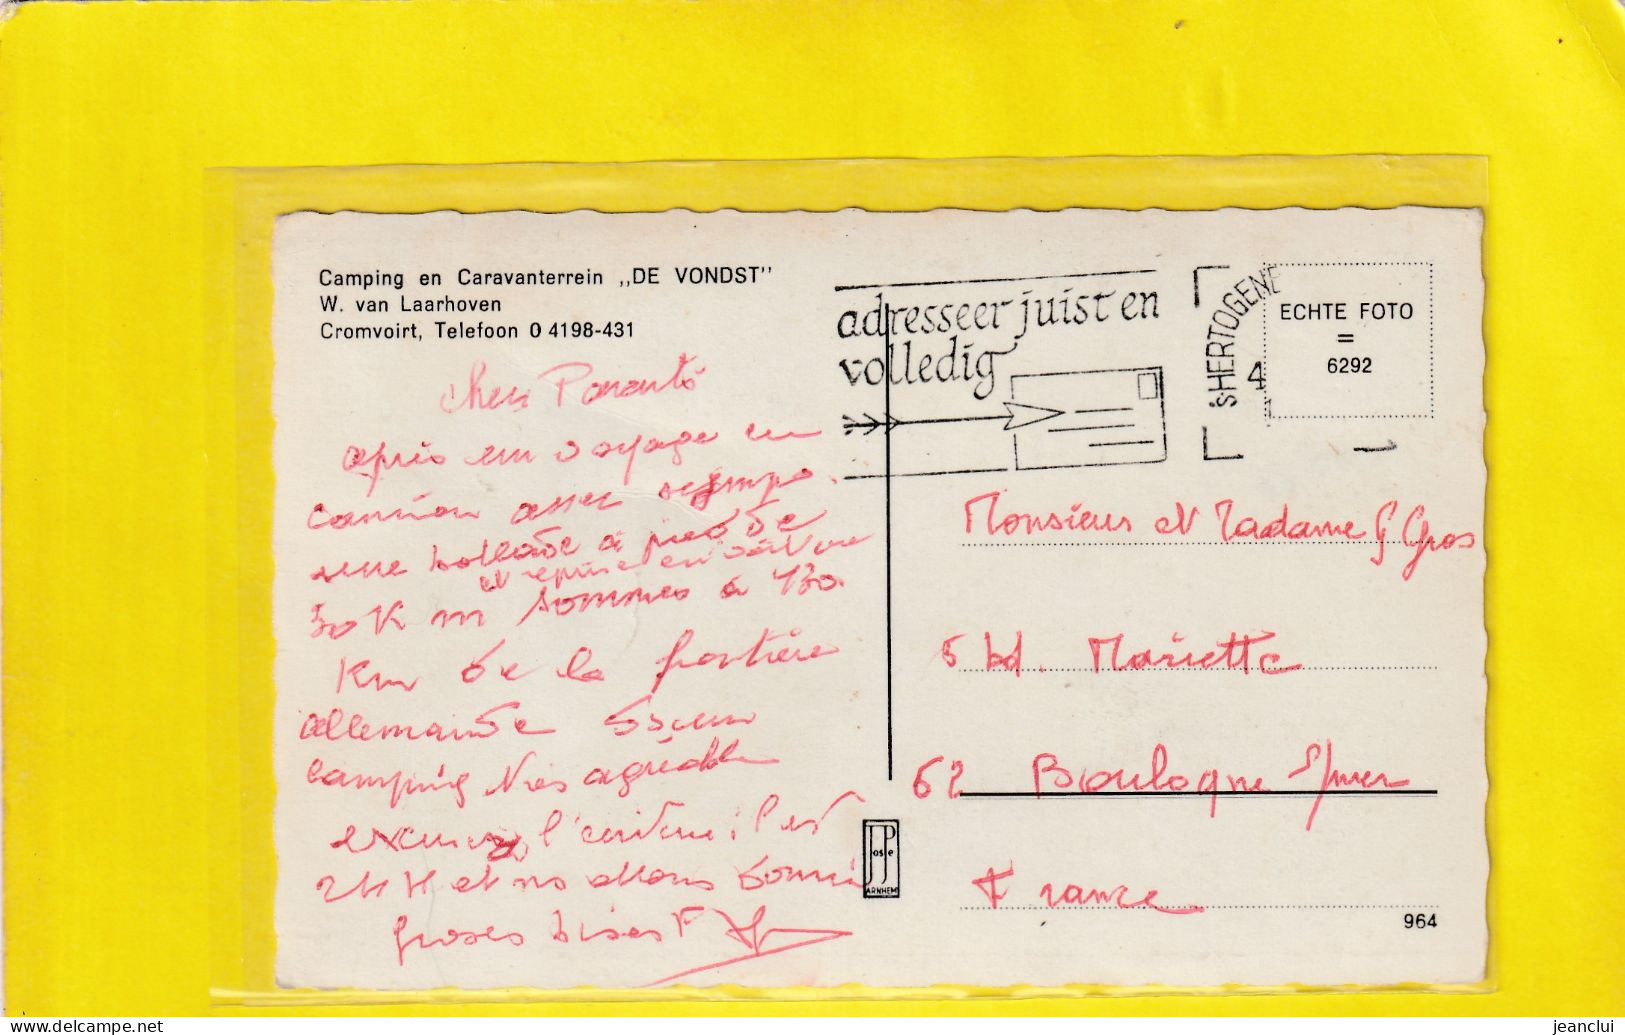 Camping en Caravanterrein „DE VONDST"
W. van Laarhoven
Cromvoirt, Telefoon 0 4198-431
adresseer juist en
volledig
'SHERTOGENE
4
ECHTE FOTO
=
6292
chers Parents
après un voyage en
camion assez sympa.
une hollade à près de
et
50 Km sommes à 130
Km de la frontière
allemande dans un
camping très agréable
excusez l'écriture il est
24 H et ns allons dormir
grosses bises F
Monsieur et Madame G Gros
5 bd. Mariette
62 Boulogne s/mer
France
JosPe
ARNHEM
964
jeanclui